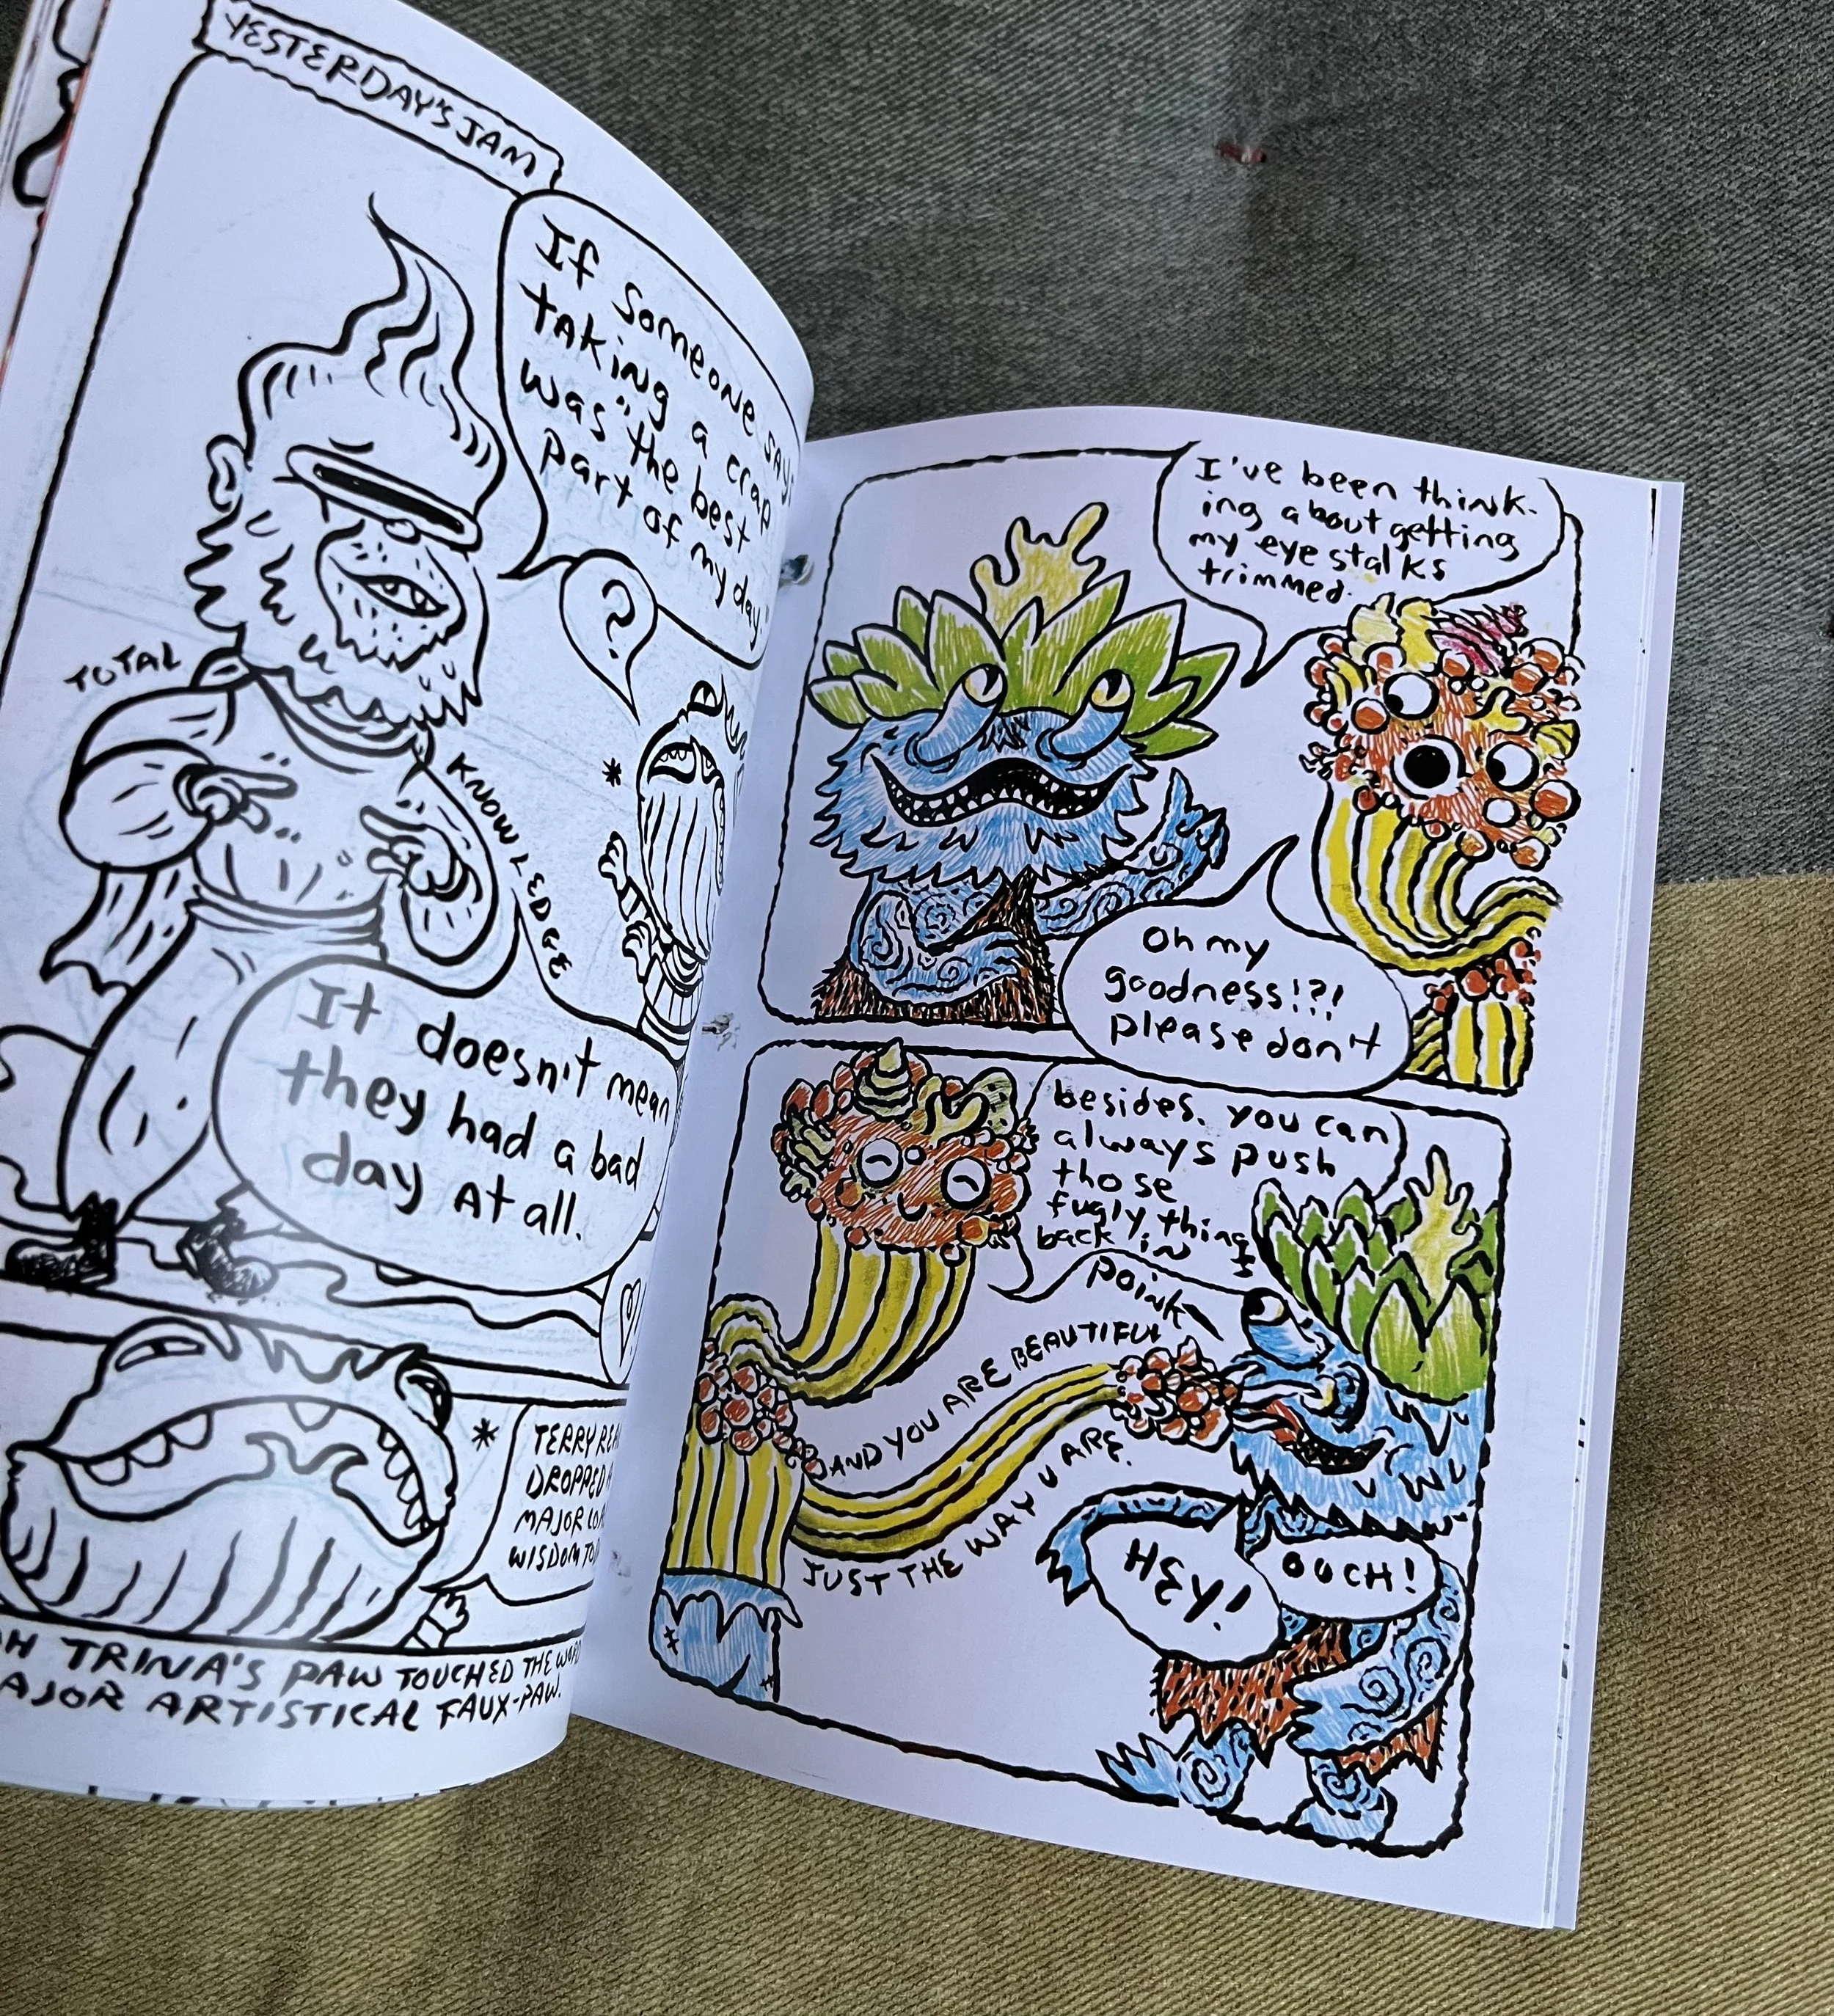 YESTERDAY'S JAM
If someone says
taking a crap
was "the best
part of my day
?
TOTAL
KNOWLEDGE
*
It doesn't mean
they had a bad
day at all.
*
TERRY
DROPPED
MAJOR
WISDOM
TRINA'S PAW TOUCHED THE
ARTISTICAL FAUX-PAW.
I've been think-
ing about getting
my eye stalks
trimmed.
Oh my
goodness!?!
please don't
besides. you can
always push
those
fugly things
back in
Poink
AND YOU ARE BEAUTIFUL
JUST THE WAY U ARE.
HEY!
OUCH!